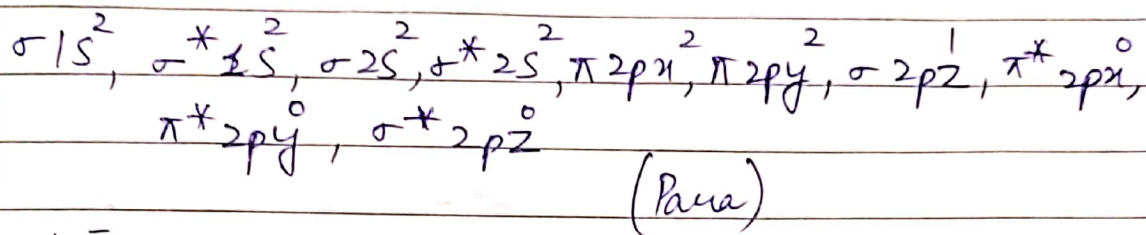 σ1s², σ*1s², σ2s², σ*2s², π2px², π2py², σ2pz¹, π*2px⁰,
π*2py⁰, σ*2pz⁰
(Para)